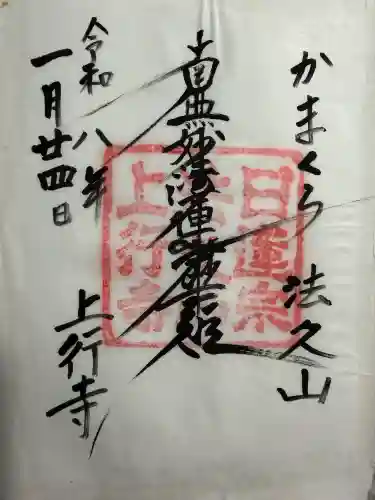 かまくら 法久山
南無妙法蓮華経
令和八年
一月廿四日
上行寺
日蓮宗
上行寺